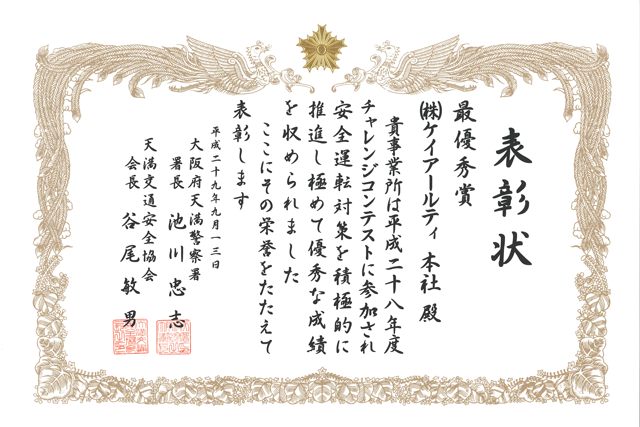 表彰状
最優秀賞
㈱ケイアールティ 本社 殿
貴事業所は平成二十八年度
チャレンジコンテストに参加され
安全運転対策を積極的に
推進し極めて優秀な成績
を収められました
ここにその栄誉をたたえて
表彰します
平成二十九年九月一三日
大阪府天満警察署
署長 池川忠志
天満交通安全協会
会長 谷尾敏男